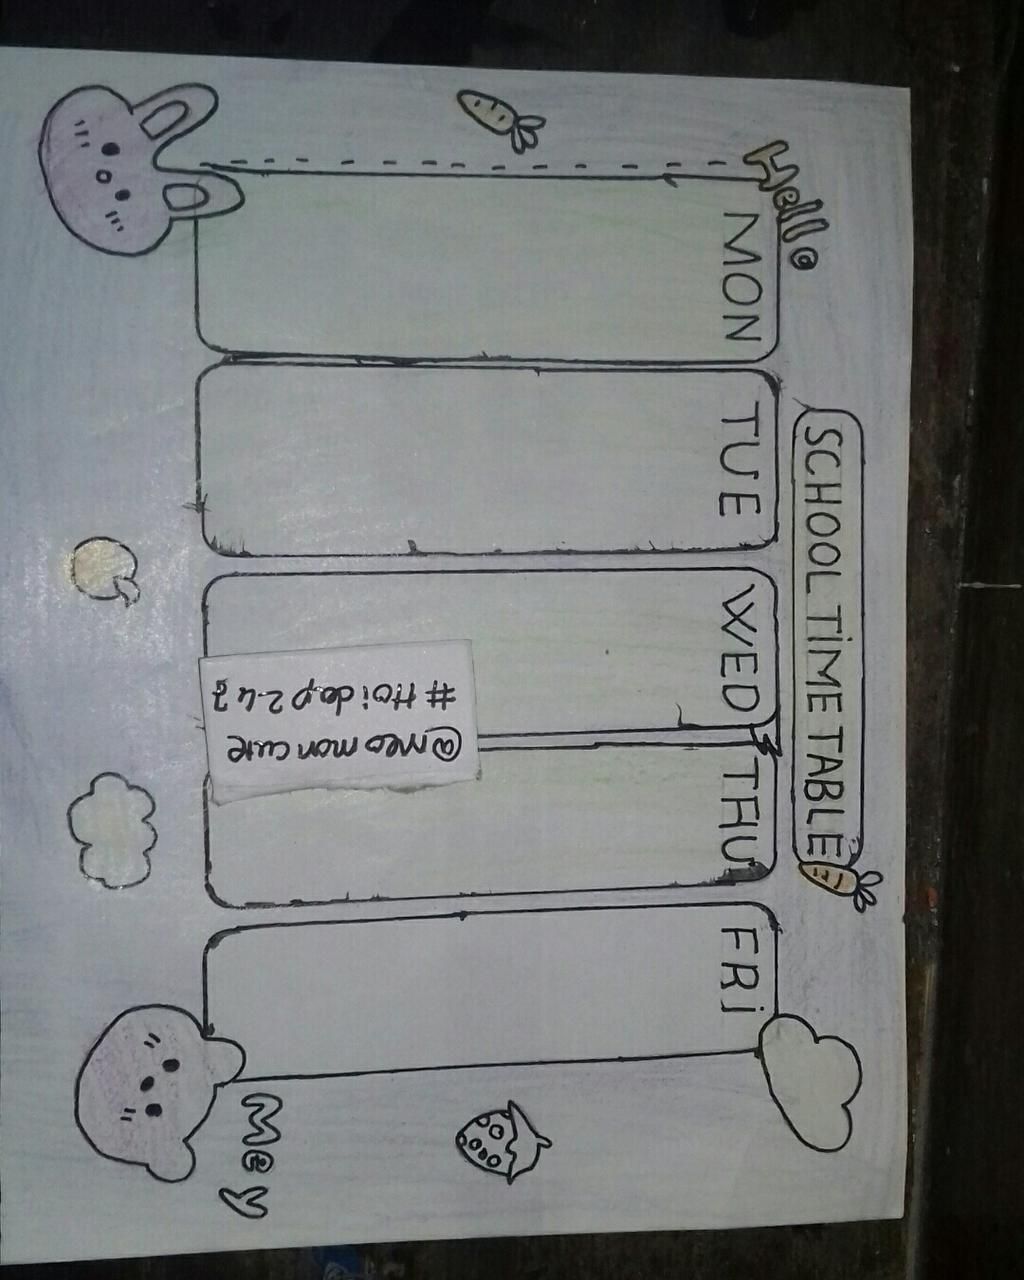 Hello
SCHOOL TIME TABLE
MON
TUE
WED
THU
FRi
@meo mon cute
#Hoi dap 247
Mey